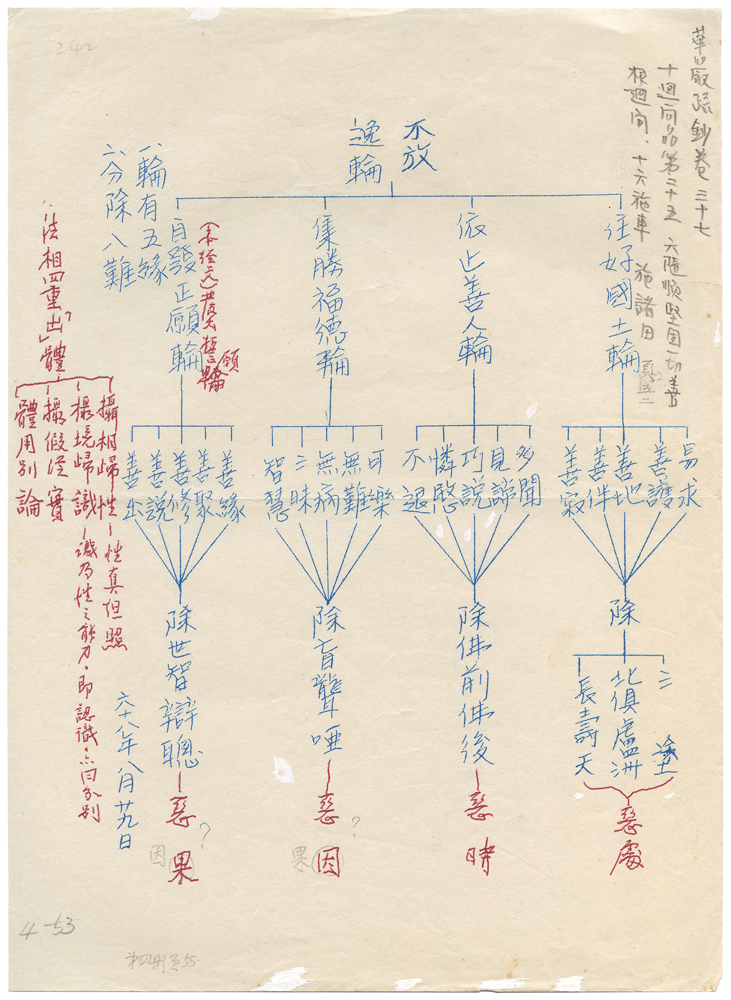 華嚴疏鈔卷三十七
十迴向品第二十五 六隨順堅固一切善
根迴向、十六施車 施諸田
不放
逸輪
住好國土輪
依止善人輪
集勝福德輪
自發正願輪
八輪有五緣
六分除八難
易求
善護
善地
善伴
善寂
多聞
見諦
巧說
憐愍
不退
可樂
無難
無病
三昧
智慧
善緣
善聚
善修
善說
善出
除
三塗
北俱盧洲
長壽天
惡處
除佛前佛後
惡時
除盲聾啞
惡因
?
果
除世智辯聰
惡果
?
因
「法相四重出體」?
攝相歸性-性真但照
攝境歸識-識乃性之能力·即認識·亦曰分別
攝假從實
體用別論
六十八年八月廿九日
242
4-53
第四冊頁55